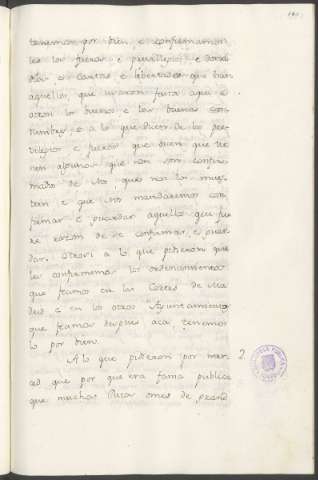 tenemos por bien, e confirmamos
les los fueros e previllegios, e dona
e Cartas e libertades que han
aquellos, que usaron fasta aqui e
otrosi los bueros e los buenas cos
tumbres; e a lo que dicen de los pre
vilegios e fueros que dicen que tie
nen algunos que non son confir
mados de Nos, que nos los mues
tren e que Nos mandaremos con
firmar e guardar aquellos que fue
re razon de se confirmar, e guar
dar. Otrosi a lo que pidieron que
les confirmemos los ordenamientos
que feimos en las Cortes de Ma
drid e en los otros Ayuntamientos
que feimos despues acá, tenemos
lo por bien.
A lo que pidieron por mer
ced que por que era fama publica 2
que muchos Ricos omes de grand